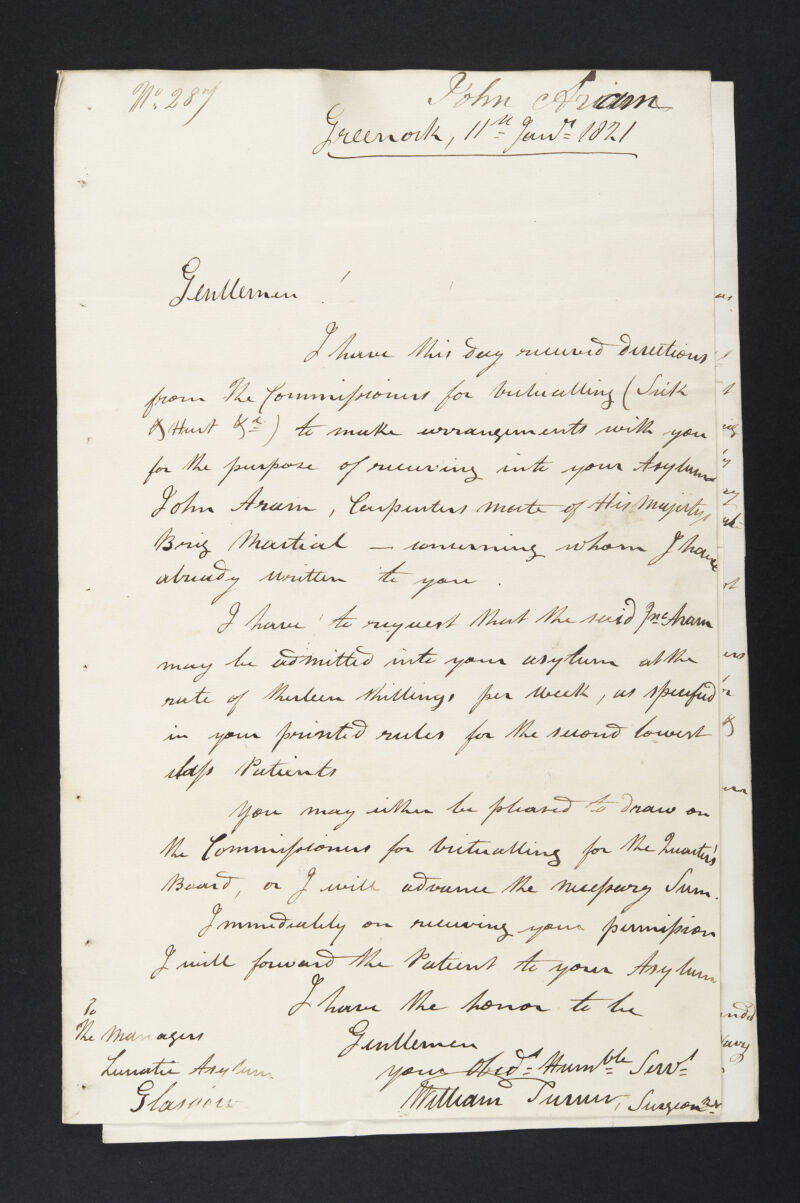 No. 287
John Aram
Greenock, 11th Janry 1821
Gentlemen!
I have this day received directions
from the Commissioners for victualling (Sick
& Hurt &c) to make arrangements with you
for the purpose of receiving into your Asylum
John Aram, Carpenters mate of His Majestys
Brig Martial — concerning whom I have
already written to you.
I have to request that the said Jno Aram
may be admitted into your asylum at the
rate of thirteen shillings per week, as specified
in your printed rules for the second lowest
class Patients
You may either be pleased to draw on
the Commissioners for victualling for the Quarter's
Board, or I will advance the necessary Sum.
Immediately on receiving your permission
I will forward the Patient to your Asylum
I have the honor to be
Gentlemen
your Obedt Humble Servt
William Turner, Surgeon
To
The Managers
Lunatic Asylum
Glasgow